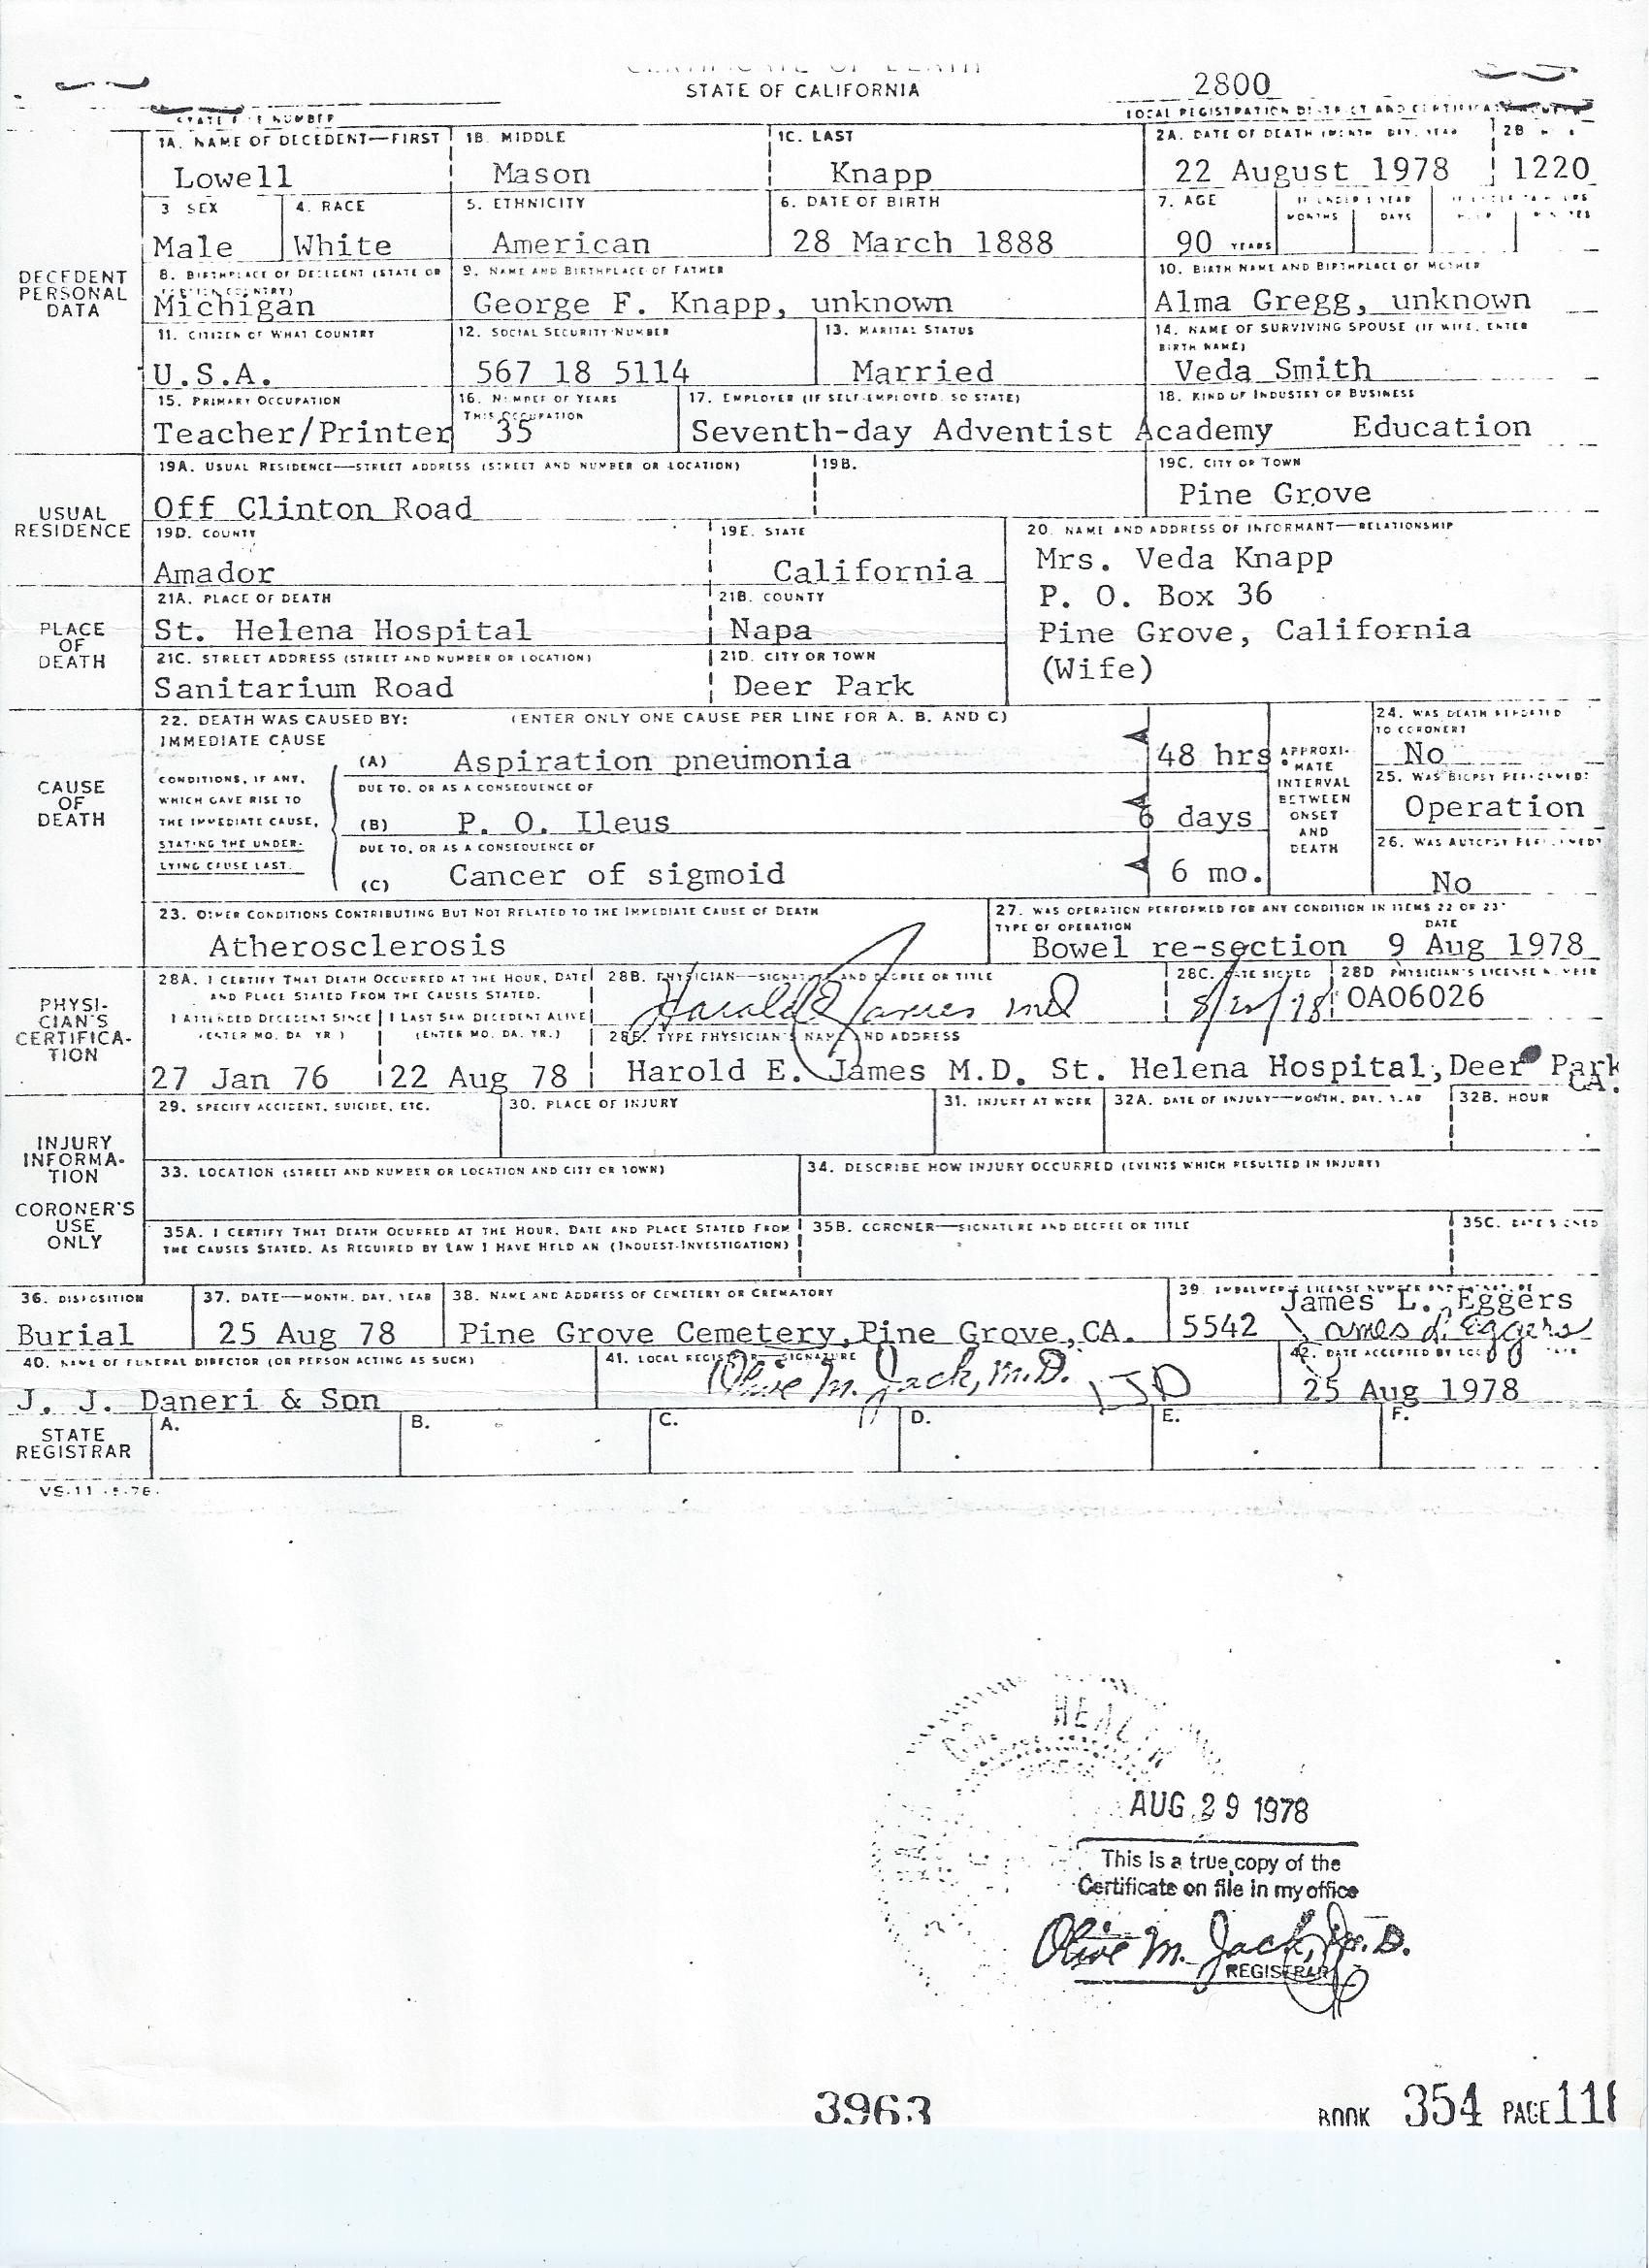 CERTIFICATE OF DEATH
STATE OF CALIFORNIA
2800
STATE FILE NUMBER
LOCAL REGISTRATION DISTRICT AND CERTIFICATE NUMBER
1A. NAME OF DECEDENT—FIRST 1B. MIDDLE 1C. LAST 2A. DATE OF DEATH (MONTH, DAY, YEAR 2B
Lowell Mason Knapp 22 August 1978 1220
3 SEX 4. RACE 5. ETHNICITY 6. DATE OF BIRTH 7. AGE IF UNDER 1 YEAR
MONTHS DAYS
Male White American 28 March 1888 90 YEARS
DECEDENT
PERSONAL
DATA
8. BIRTHPLACE OF DECEDENT (STATE OR
FOREIGN COUNTRY)
9. NAME AND BIRTHPLACE OF FATHER 10. BIRTH NAME AND BIRTHPLACE OF MOTHER
Michigan George F. Knapp, unknown Alma Gregg, unknown
11. CITIZEN OF WHAT COUNTRY 12. SOCIAL SECURITY NUMBER 13. MARITAL STATUS 14. NAME OF SURVIVING SPOUSE (IF WIFE, ENTER
BIRTH NAME)
U.S.A. 567 18 5114 Married Veda Smith
15. PRIMARY OCCUPATION 16. NUMBER OF YEARS
THIS OCCUPATION
17. EMPLOYER (IF SELF-EMPLOYED, SO STATE) 18. KIND OF INDUSTRY OR BUSINESS
Teacher/Printer 35 Seventh-day Adventist Academy Education
USUAL
RESIDENCE
19A. USUAL RESIDENCE—STREET ADDRESS (STREET AND NUMBER OR LOCATION) 19B. 19C. CITY OR TOWN
Off Clinton Road Pine Grove
19D. COUNTY 19E. STATE 20. NAME AND ADDRESS OF INFORMANT—RELATIONSHIP
Amador California
Mrs. Veda Knapp
P. O. Box 36
Pine Grove, California
(Wife)
PLACE
OF
DEATH
21A. PLACE OF DEATH 21B. COUNTY
St. Helena Hospital Napa
21C. STREET ADDRESS (STREET AND NUMBER OR LOCATION) 21D. CITY OR TOWN
Sanitarium Road Deer Park
CAUSE
OF
DEATH
22. DEATH WAS CAUSED BY: (ENTER ONLY ONE CAUSE PER LINE FOR A, B, AND C)
IMMEDIATE CAUSE
(A) Aspiration pneumonia 48 hrs
CONDITIONS, IF ANY,
WHICH GAVE RISE TO
THE IMMEDIATE CAUSE,
STATING THE UNDER-
LYING CAUSE LAST.
DUE TO, OR AS A CONSEQUENCE OF
(B) P. O. Ileus 6 days
DUE TO, OR AS A CONSEQUENCE OF
(C) Cancer of sigmoid 6 mo.
APPROXI-
MATE
INTERVAL
BETWEEN
ONSET
AND
DEATH
24. WAS DEATH REPORTED
TO CORONER?
No
25. WAS BIOPSY PERFORMED?
Operation
26. WAS AUTOPSY PERFORMED?
No
23. OTHER CONDITIONS CONTRIBUTING BUT NOT RELATED TO THE IMMEDIATE CAUSE OF DEATH
Atherosclerosis
27. WAS OPERATION PERFORMED FOR ANY CONDITION IN ITEMS 22 OR 23?
TYPE OF OPERATION DATE
Bowel re-section 9 Aug 1978
PHYSI-
CIAN'S
CERTIFICA-
TION
28A. I CERTIFY THAT DEATH OCCURRED AT THE HOUR, DATE
AND PLACE STATED FROM THE CAUSES STATED.
I ATTENDED DECEDENT SINCE I LAST SAW DECEDENT ALIVE
(ENTER MO. DA. YR.) (ENTER MO. DA. YR.)
27 Jan 76 22 Aug 78
28B. PHYSICIAN—SIGNATURE AND DEGREE OR TITLE 28C. DATE SIGNED 28D PHYSICIAN'S LICENSE NUMBER
Harold E James md OA06026
28E. TYPE PHYSICIAN'S NAME AND ADDRESS
Harold E. James M.D. St. Helena Hospital, Deer Park
CA.
INJURY
INFORMA-
TION
CORONER'S
USE
ONLY
29. SPECIFY ACCIDENT, SUICIDE, ETC. 30. PLACE OF INJURY 31. INJURY AT WORK 32A. DATE OF INJURY—MONTH, DAY, YEAR 32B. HOUR
33. LOCATION (STREET AND NUMBER OR LOCATION AND CITY OR TOWN) 34. DESCRIBE HOW INJURY OCCURRED (EVENTS WHICH RESULTED IN INJURY)
35A. I CERTIFY THAT DEATH OCURRED AT THE HOUR, DATE AND PLACE STATED FROM
THE CAUSES STATED, AS REQUIRED BY LAW I HAVE HELD AN (INQUEST-INVESTIGATION)
35B. CORONER—SIGNATURE AND DEGREE OR TITLE 35C. DATE SIGNED
36. DISPOSITION 37. DATE—MONTH, DAY, YEAR 38. NAME AND ADDRESS OF CEMETERY OR CREMATORY 39. EMBALMER'S LICENSE NUMBER AND SIGNATURE
James L. Eggers
Burial 25 Aug 78 Pine Grove Cemetery, Pine Grove, CA. 5542 James L. Eggers
40. NAME OF FUNERAL DIRECTOR (OR PERSON ACTING AS SUCH) 41. LOCAL REGISTRAR—SIGNATURE 42. DATE ACCEPTED BY LOCAL
J. J. Daneri & Son Olive M. Jack, M.D. 25 Aug 1978
STATE
REGISTRAR
A. B. C. D. E. F.
VS-11
HEALTH
AUG 29 1978
This is a true copy of the
Certificate on file in my office
Olive M. Jack, M.D.
REGISTRAR
3963 BOOK 354 PAGE